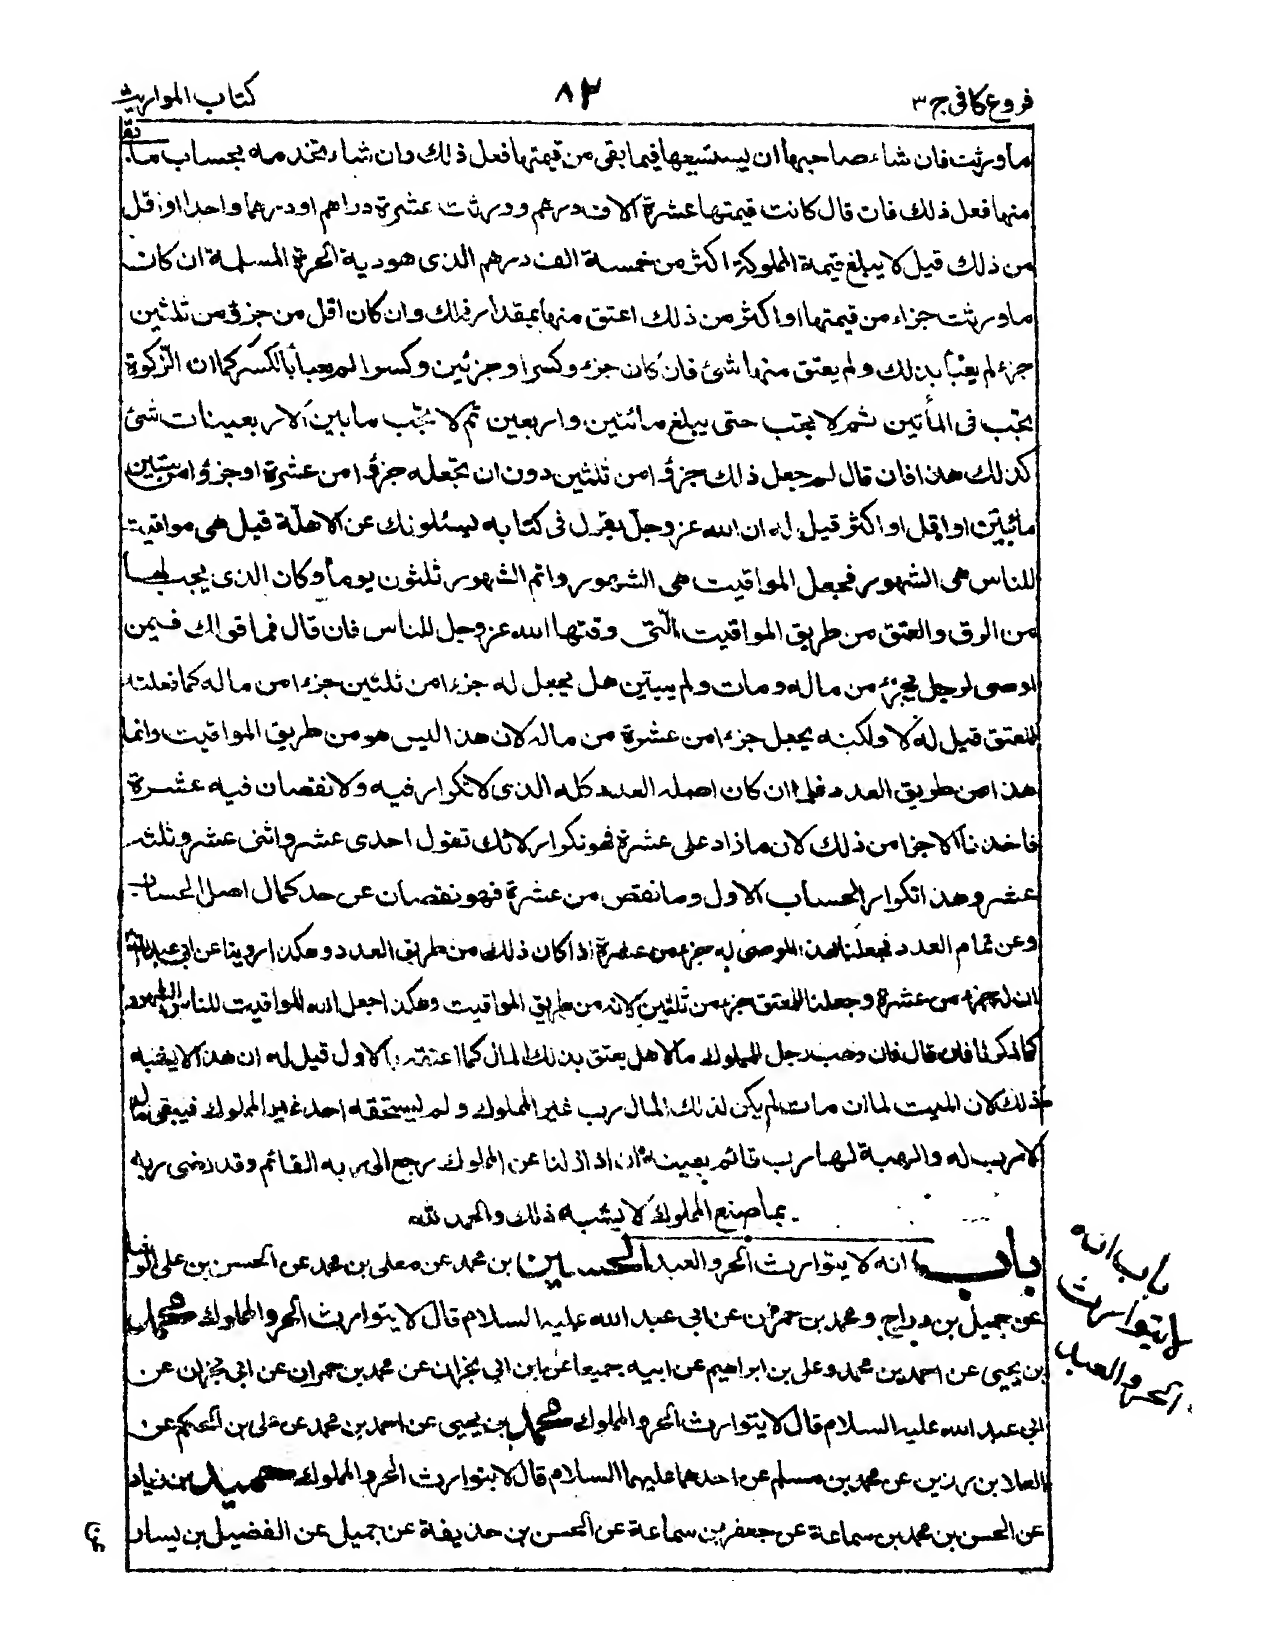 فروع كافى ج ٣
٨٢
كتاب المواريث
ما ورثت فان شاء صاحبها ان يستسعيها فيما بقى من قيمتها فعل ذلك وان شاء تخدمه بحساب ما بقى
منها فعل ذلك فان قال كانت قيمتها عشرة الاف درهم وورثت عشرة دراهم او درهما واحدا او اقل
من ذلك قيل لا يبلغ قيمة المملوكة اكثر من خمسة الف درهم الذى هو دية الحرة المسلمة ان كان
ما ورثت جزاء من قيمتها او اكثر من ذلك اعتق منها بمقدار ذلك وان كان اقل من جزؤ من ثلثين
جزء لم يعبأ بذلك ولم يعتق منها شئ فان كان جزء وكسرا او جزئين وكسرا لم يعبأ بالكسر كما ان الزكوة
يجب فى المأتين ثم لا يجب حتى يبلغ مائتين واربعين ثم لا يجب ما بين الاربعينات شئ
كذلك هذا فان قال لم جعل ذلك جزؤا من ثلثين دون ان تجعله جزؤا من عشرة او جزؤا من ستين
او اقل او اكثر قيل له ان الله عز وجل يقول فى كتابه يسئلونك عن الاهلة قيل هى مواقيت
للناس هى الشهور فجعل المواقيت هى الشهور واتم الشهور ثلثون يوما وكان الذى يجب لها
من الرق والعتق من طريق المواقيت التى وقتها الله عز وجل للناس فان قال فما قولك فيمن
اوصى لرجل بجزء من ماله ومات ولم يبين هل يجعل له جزءا من ثلثين جزءا من ماله كما فعلته
للعتق قيل له لا ولكنه يجعل جزءا من عشرة من ماله لان هذا ليس هو من طريق المواقيت وانما
هذا من طريق العدد فلما ان كان اصل العدد كله الذى لا تكرار فيه ولا نقصان فيه عشرة
فاخذنا الاجزا من ذلك لان ما زاد على عشرة فهو تكرار لانك تقول احدى عشر واثنى عشر وثلثه
عشر وهذا تكرار الحساب الاول وما نقص من عشرة فهو نقصان عن حد كمال اصل الحساب
وعن تمام العدد فجعلنا لهذا الموصى به جزء من عشرة اذا كان ذلك من طريق العدد وهكذا روينا عن ابى عبد الله
ان له جزء من عشرة وجعلنا للمعتق جزء من ثلثين لانه من طريق المواقيت وهكذا جعل الله المواقيت للناس الشهور
كما ذكرنا فان قال فان وهب رجل للمملوك مالا هل يعتق بذلك المال كما اعتقته بالاول قيل له ان هذا لا يشبه
ذلك لان الميت لما ان مات لم يكن لذلك المال رب غير المملوك ولم يستحقه احد غير المملوك فيبقى مال
لا رب له والهبة لها رب قائم بعينه ان اذ ازلنا عن المملوك رجع الى ربه القائم وقد رضى ربه
بما صنع المملوك لا يشبه ذلك والحمد لله
باب انه لا يتوارث الحر والعبد الحسين بن محمد عن معلى بن محمد عن الحسن بن على الوشا
عن جميل بن دراج ومحمد بن حمران عن ابى عبد الله عليه السلام قال لا يتوارث الحر والمملوك محمد
بن يحيى عن احمد بن محمد وعلى بن ابراهيم عن ابيه جميعا عن ابن ابى نجران عن محمد بن حمران عن
ابى عبد الله عليه السلام قال لا يتوارث الحر والمملوك محمد بن يحيى عن احمد بن محمد عن على بن الحكم عن
العلا بن رزين عن محمد بن مسلم عن احدهما عليهما السلام قال لا يتوارث الحر والمملوك حميد بن زياد
عن الحسن بن محمد بن سماعة عن جعفر بن سماعة عن الحسن بن حذيفة عن جميل عن الفضيل بن يسار
باب انه
لا يتوارث
الحر والعبد